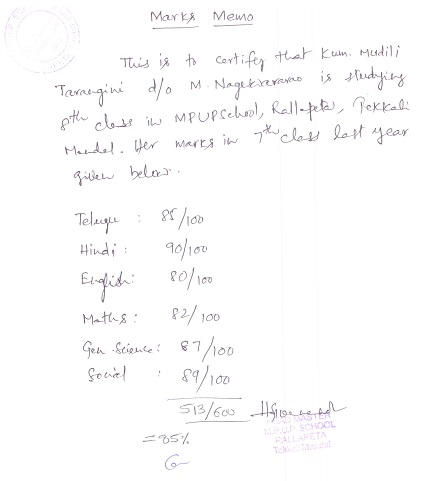 Marks Memo
This is to certify that Kum. Mudili
Tarangini d/o M. Nageswararao is studying
8th class in MPUPSchool, Rallapeta, Tekkali
Mandal. Her marks in 7th class last year
given below.
Telugu : 85/100
Hindi : 90/100
English : 80/100
Maths : 82/100
Gen. Science : 87/100
Social : 89/100
513/600
HEAD MASTER
M.P.U.P. SCHOOL
RALLAPETA
Tekkali Mandal
=85%